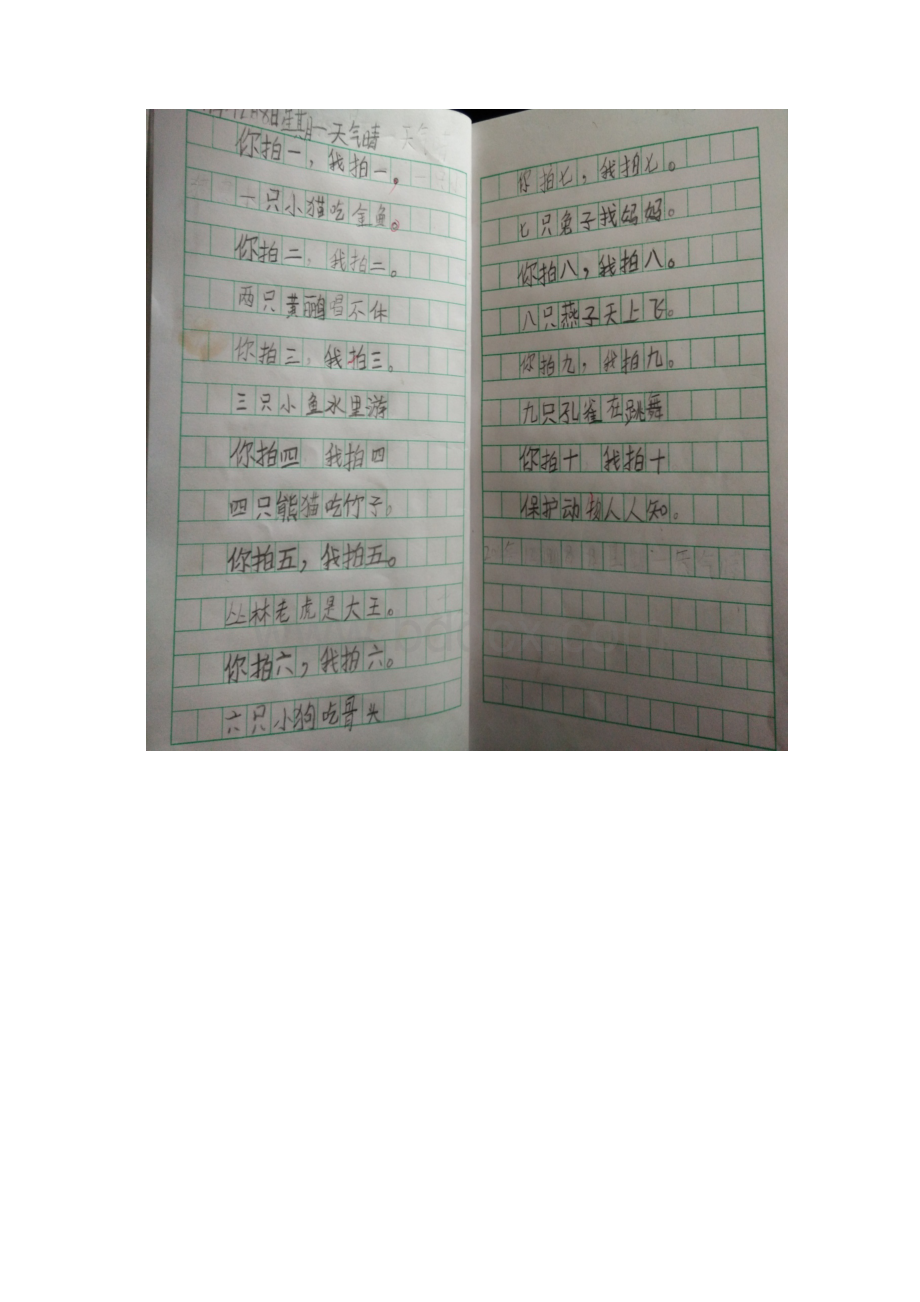 星期一天气晴
你拍一，我拍一。
一只小猫吃金鱼。
你拍二，我拍二。
两只黄鹂唱不休
你拍三，我拍三。
三只小鱼水里游
你拍四 我拍四
四只熊猫吃竹子。
你拍五，我拍五。
丛林老虎是大王。
你拍六，我拍六。
六只小狗吃哥头
你拍七，我拍七。
七只兔子找妈妈。
你拍八，我拍八。
八只燕子天上飞。
你拍九，我拍九。
九只孔雀在跳舞
你拍十 我拍十
保护动物人人知。